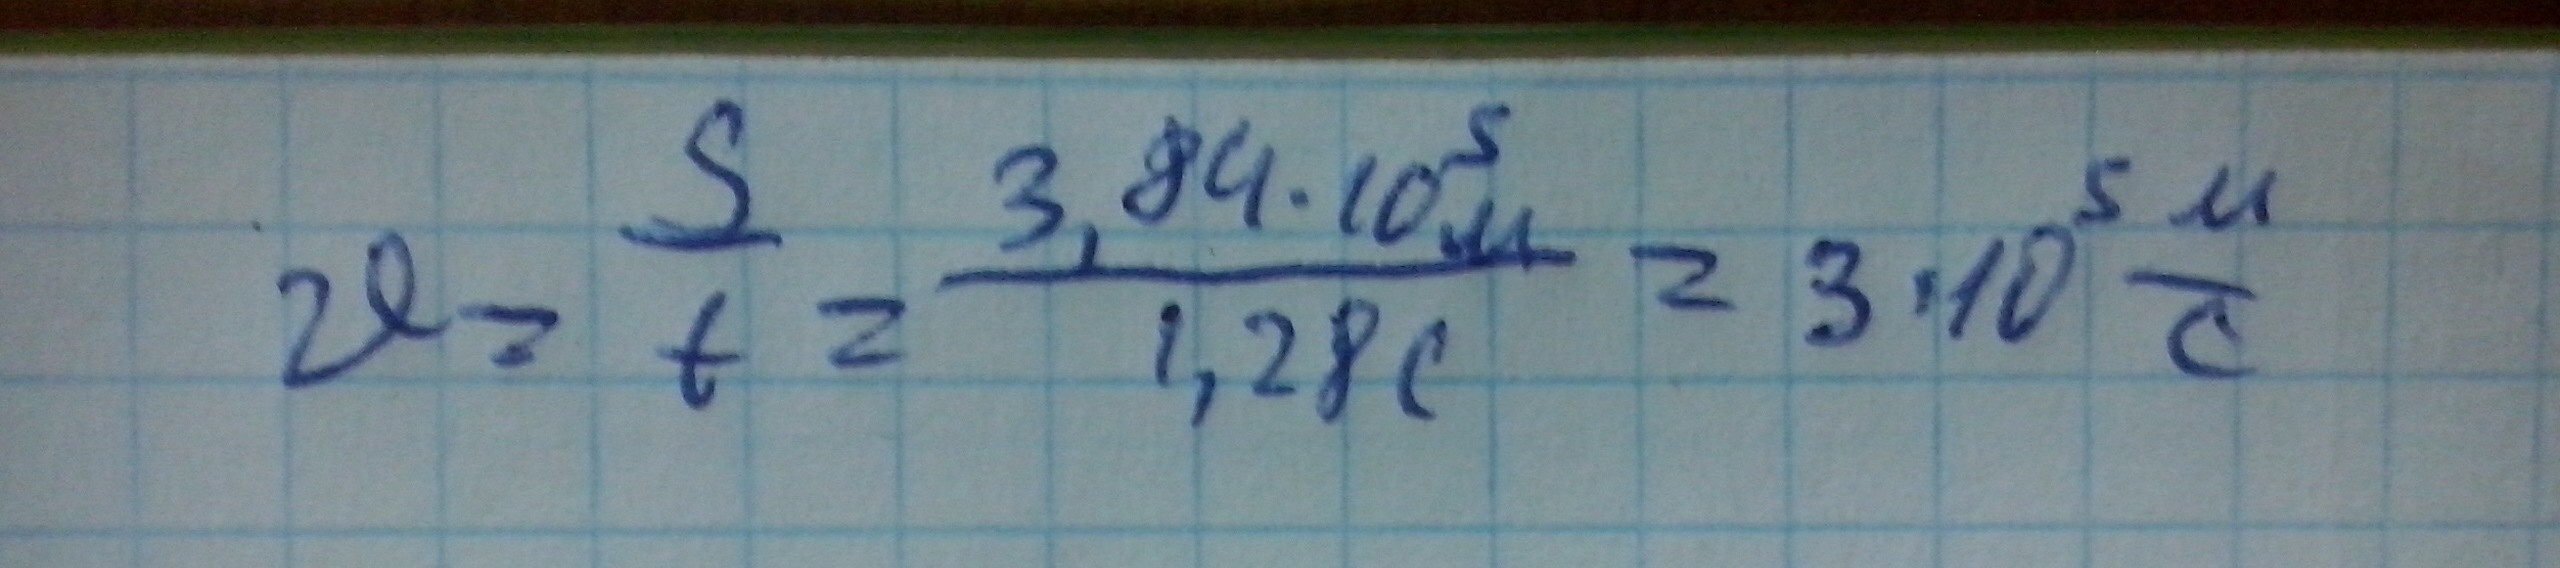 υ = S/t = 3,84·10⁵м / 1,28с = 3·10⁵ м/с